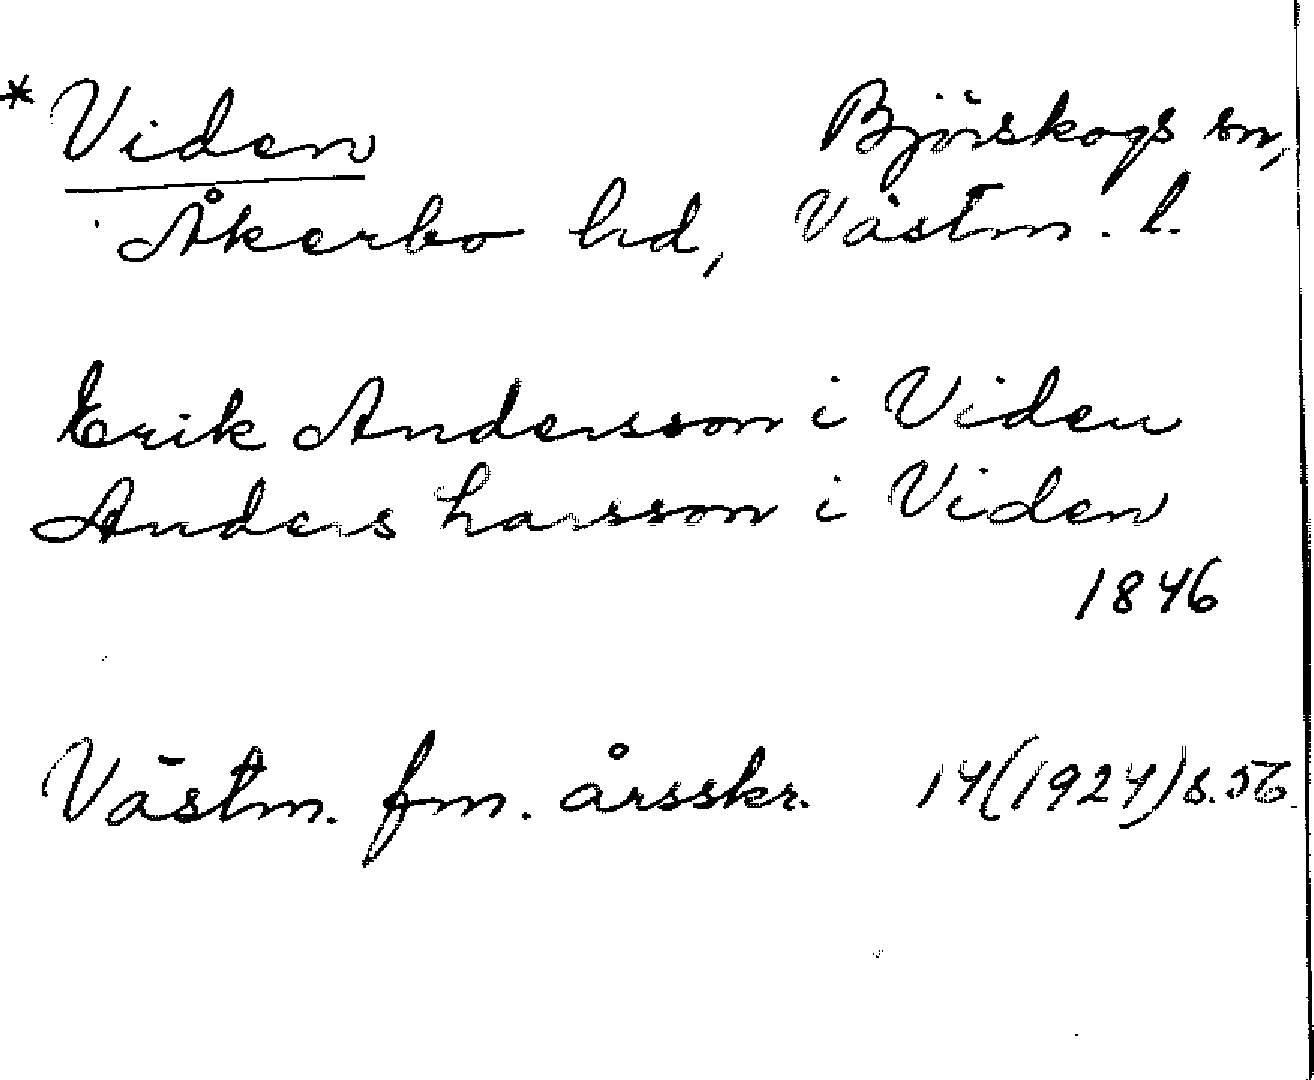 * Viden Björskogs sn,
Åkerbo hd, Västm. l.
Erik Andersson i Viden
Anders Larsson i Viden
1846
Västm. fm. årsskr. 14(1924) s. 56.